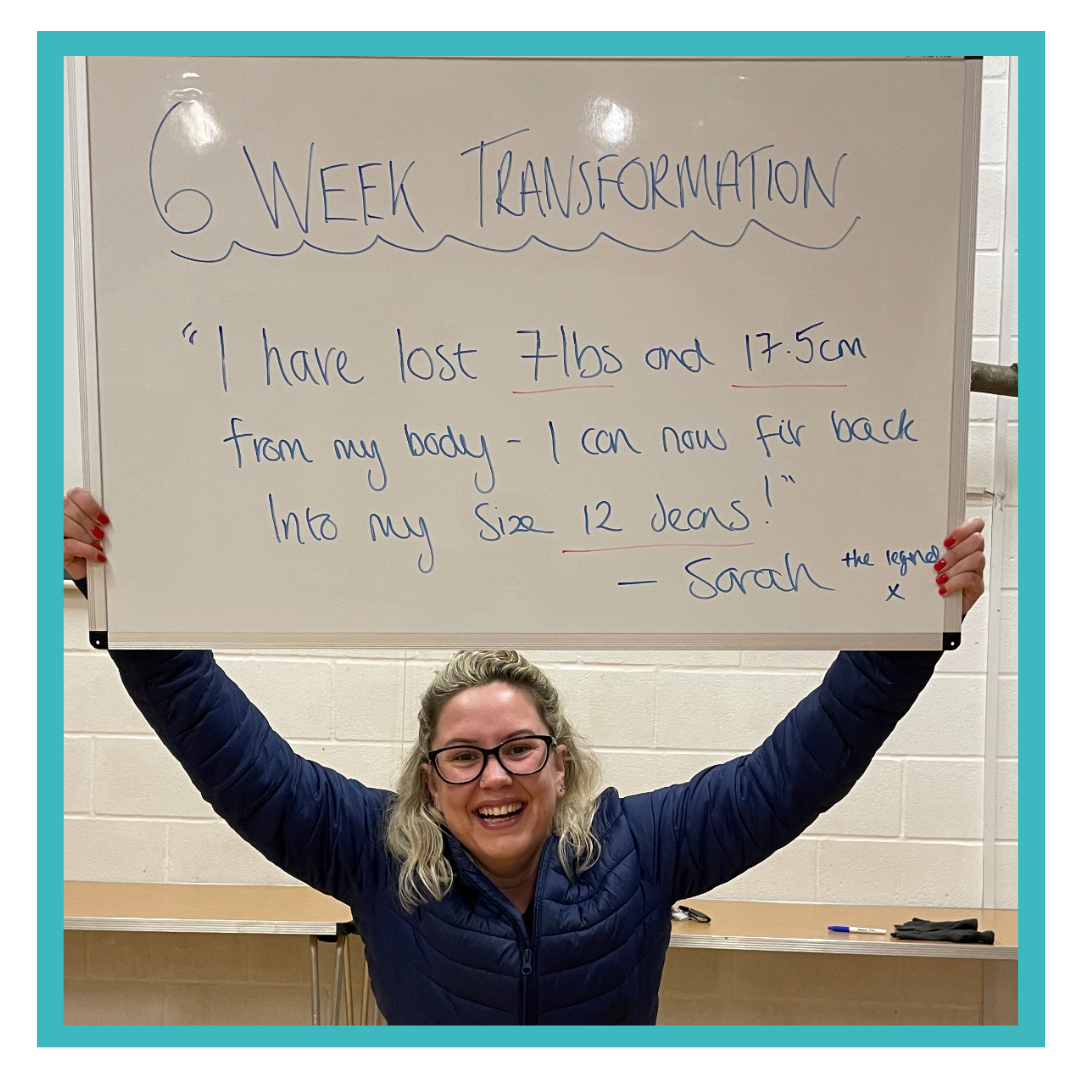 6 WEEK TRANSFORMATION
"I have lost 7lbs and 17.5cm
from my body - I can now fit back
Into my Size 12 Jeans!"
- Sarah the legend
x